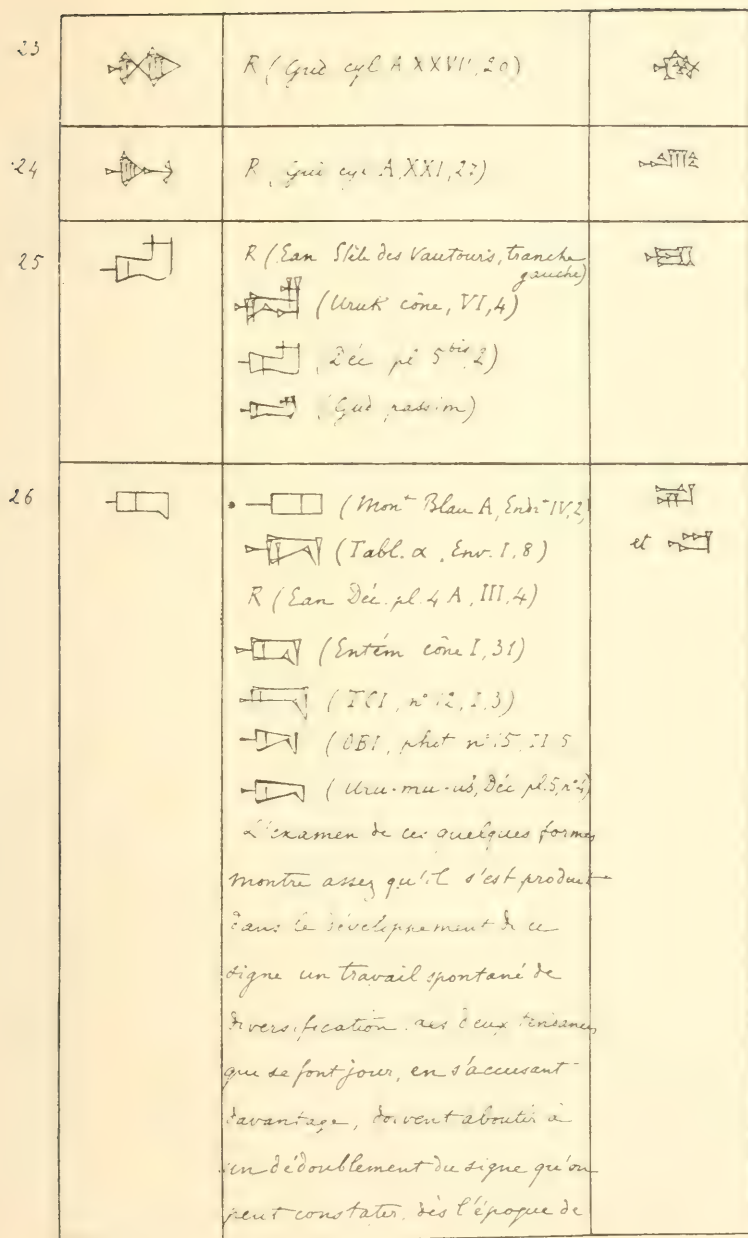 23 R (Gud cyl A XXVI, 20)
24 R (Gud cyl A, XXI, 27)
25 R (Ean Stèle des Vautours, tranche
gauche)
(Uruk cône, VI, 4)
(Déc pl 5 bis, 2)
(Gud passim)
26 (Mont Blau A, Endr IV, 2)
et
(Tabl. α, Env. I, 8)
R (Ean Déc. pl. 4 A, III, 4)
(Entém cône I, 31)
(TCI, n° 12, I, 3)
(OBI, phot n° 15, II 5
(Uru-mu-uš, Déc pl. 5, n°)
L'examen de ces quelques formes
montre assez qu'il s'est produit
dans le développement de ce
signe un travail spontané de
diversification. Les deux tendances
que se font jour, en s'accusant
davantage, doivent aboutir à
un dédoublement du signe qu'on
peut constater, dès l'époque de